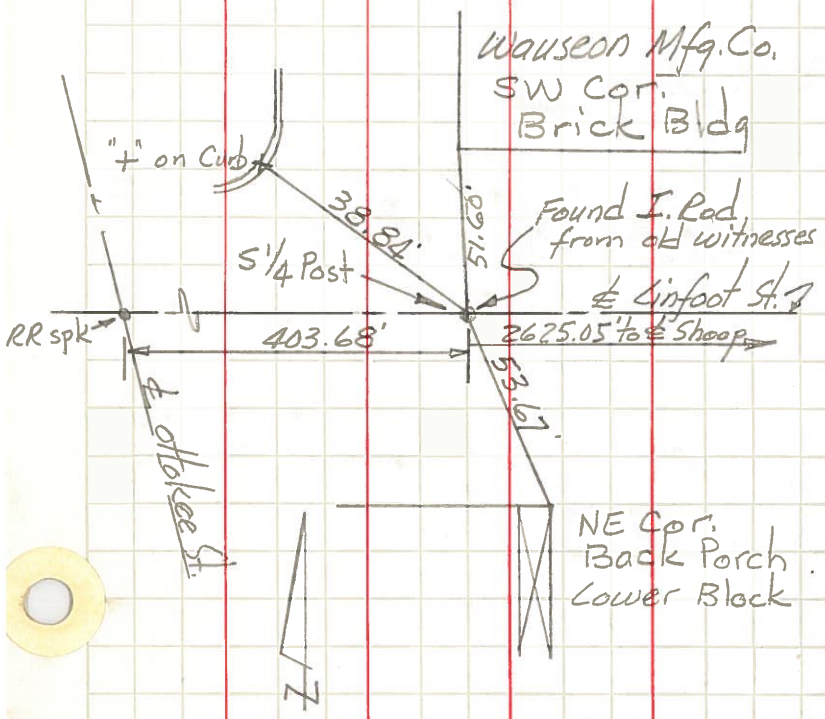 Wauseon Mfg. Co.
SW Cor.
Brick Bldg
"+" on Curb
38.84'
51.60'
Found I. Rod
from old witnesses
S 1/4 Post
℄ Linfoot St.
RR spk
403.68'
2625.05' to ℄ Shoop
53.67'
℄ Ottokee St.
NE Cor.
Back Porch
Lower Block
N